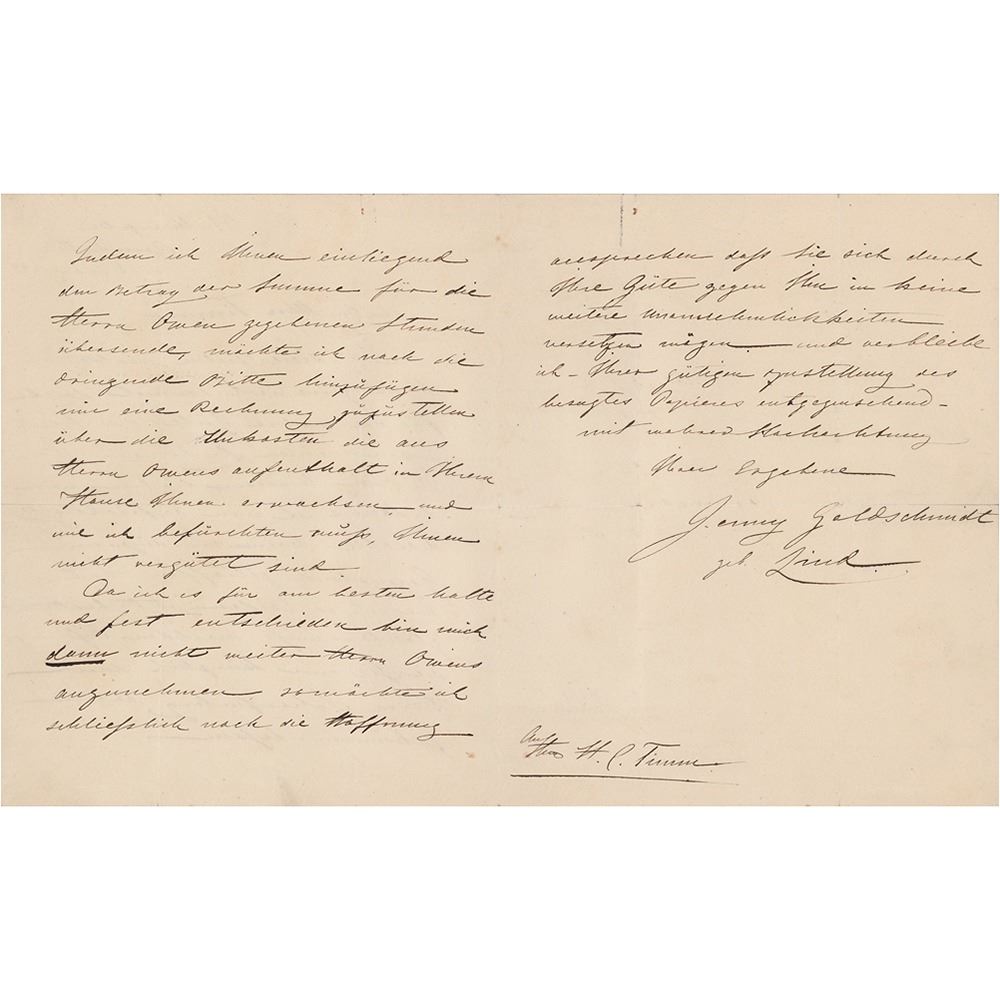 Indem ich Ihnen einliegend
den Betrag der Summe für die
Herrn Owen gegebenen Stunden
übersende, möchte ich noch die
dringende Bitte hinzufügen
mir eine Rechnung zuzustellen
über die Unkosten die aus
Herrn Owens aufenthalt in Ihrem
Hause Ihnen erwachsen und
wie ich befürchten muß, Ihnen
nicht vergütet sind.
Da ich es für am besten halte
und fest entschieden bin mich
dann nicht weiter Herrn Owens
anzunehmen so möchte ich
schließlich noch die Hoffnung
aussprechen daß Sie sich durch
Ihre Güte gegen Ihn in keine
weitere Unannehmlichkeiten
versetzen mögen und verbleibe
ich - Ihrer gütigen Zustellung des
besagtes Papieres entgegensehend -
mit wahrer Hochachtung
Ihre Ergebene
Jenny Goldschmidt
geb. Lind.
H. C. Timm